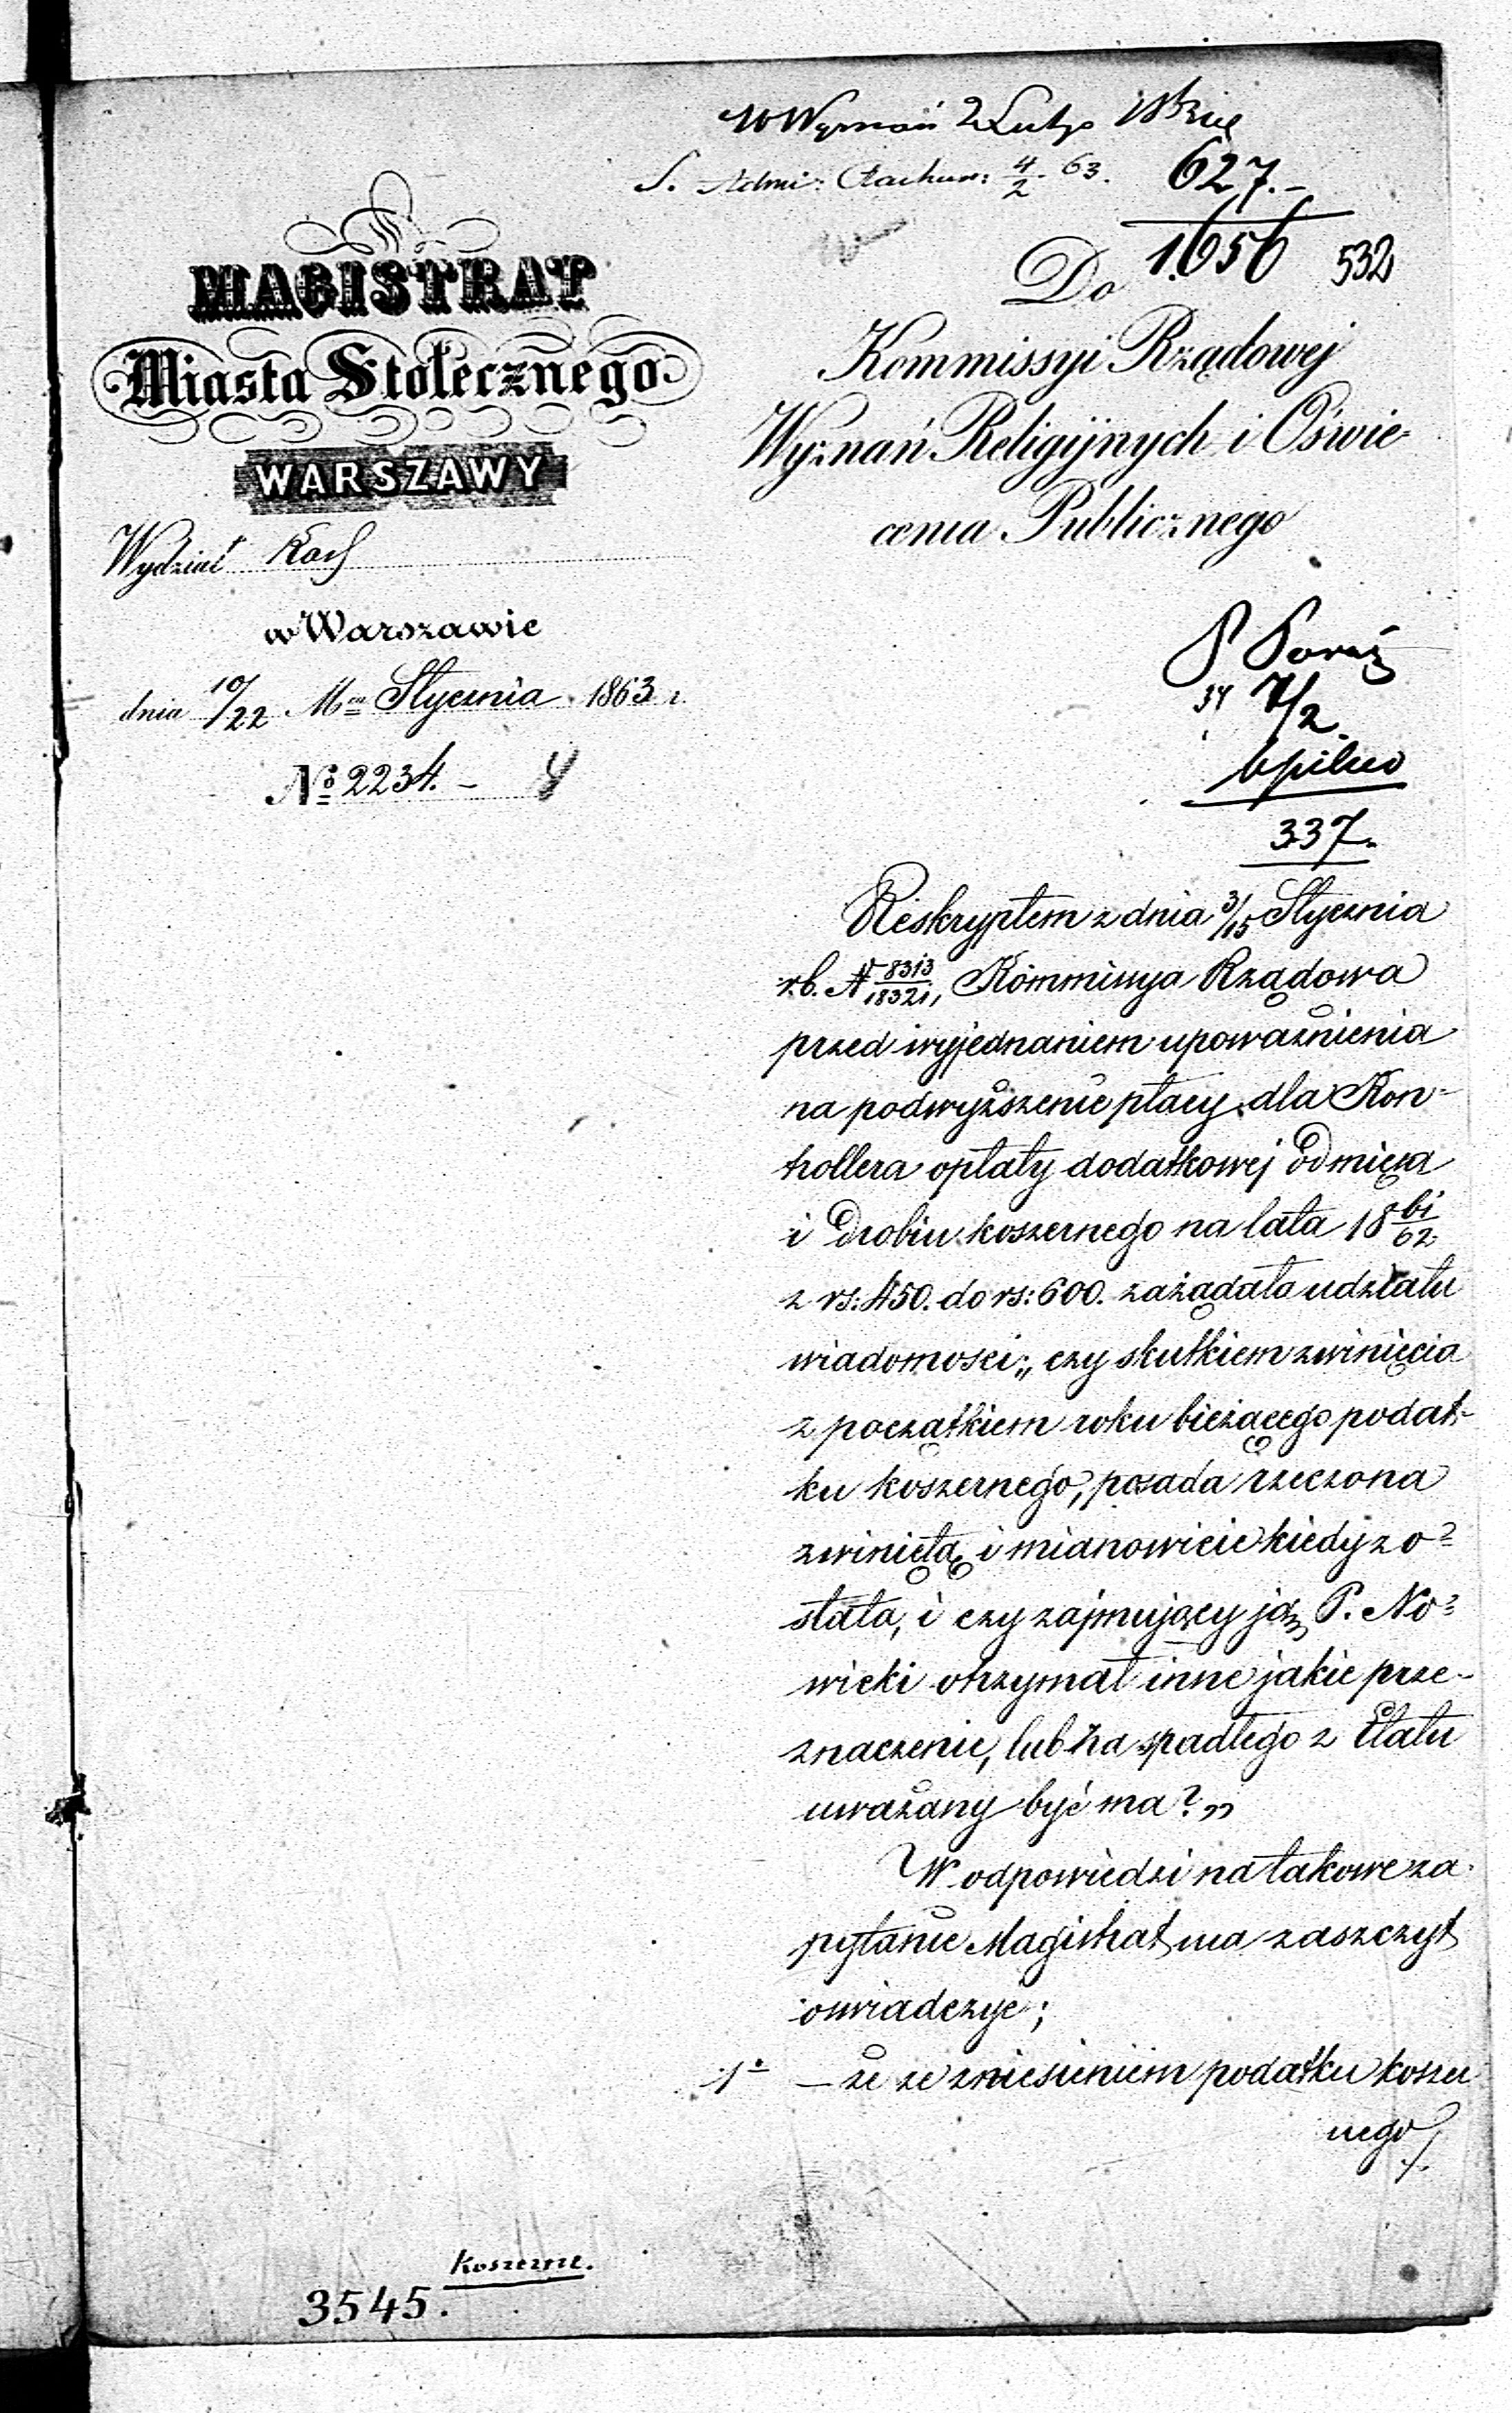 2 Lutego
S. Admi: Rachun: 4/2 63. 627.-
1656 532
MAGISTRAT
Miasta Stołecznego
WARSZAWY
Wydział
w Warszawie
dnia 10/22 Mca Stycznia 1863 r.
No 2234. -
Do
Kommissyi Rządowej
Wyznań Religijnych i Oświe-
cenia Publicznego
P
7/2
bpilno
337.
Reskryptem z dnia 3/15 Stycznia
r.b. N 8313/18321, Kommissya Rządowa
przed wyjednaniem upoważnienia
na podwyższenie płacy dla Kon-
trollera opłaty dodatkowej od mięsa
i drobiu koszernego na lata 18 61/62
z rs: 450. do rs: 600. zażądała udziału
wiadomości; „czy skutkiem zwinięcia
z początkiem roku bieżącego podat-
ku koszernego, posada rzeczona
zwinięta i mianowicie kiedy zo=
stała, i czy zajmujący ją P. No=
wicki otrzymał inne jakie prze-
znaczenie, lub za spadłego z Etatu
uważany być ma?„
W odpowiedzi na takowe za-
pytanie Magistrat ma zaszczyt
oświadczyć;
1o — że ze zniesieniem podatku koszer
nego /.
Koszerne.
3545.